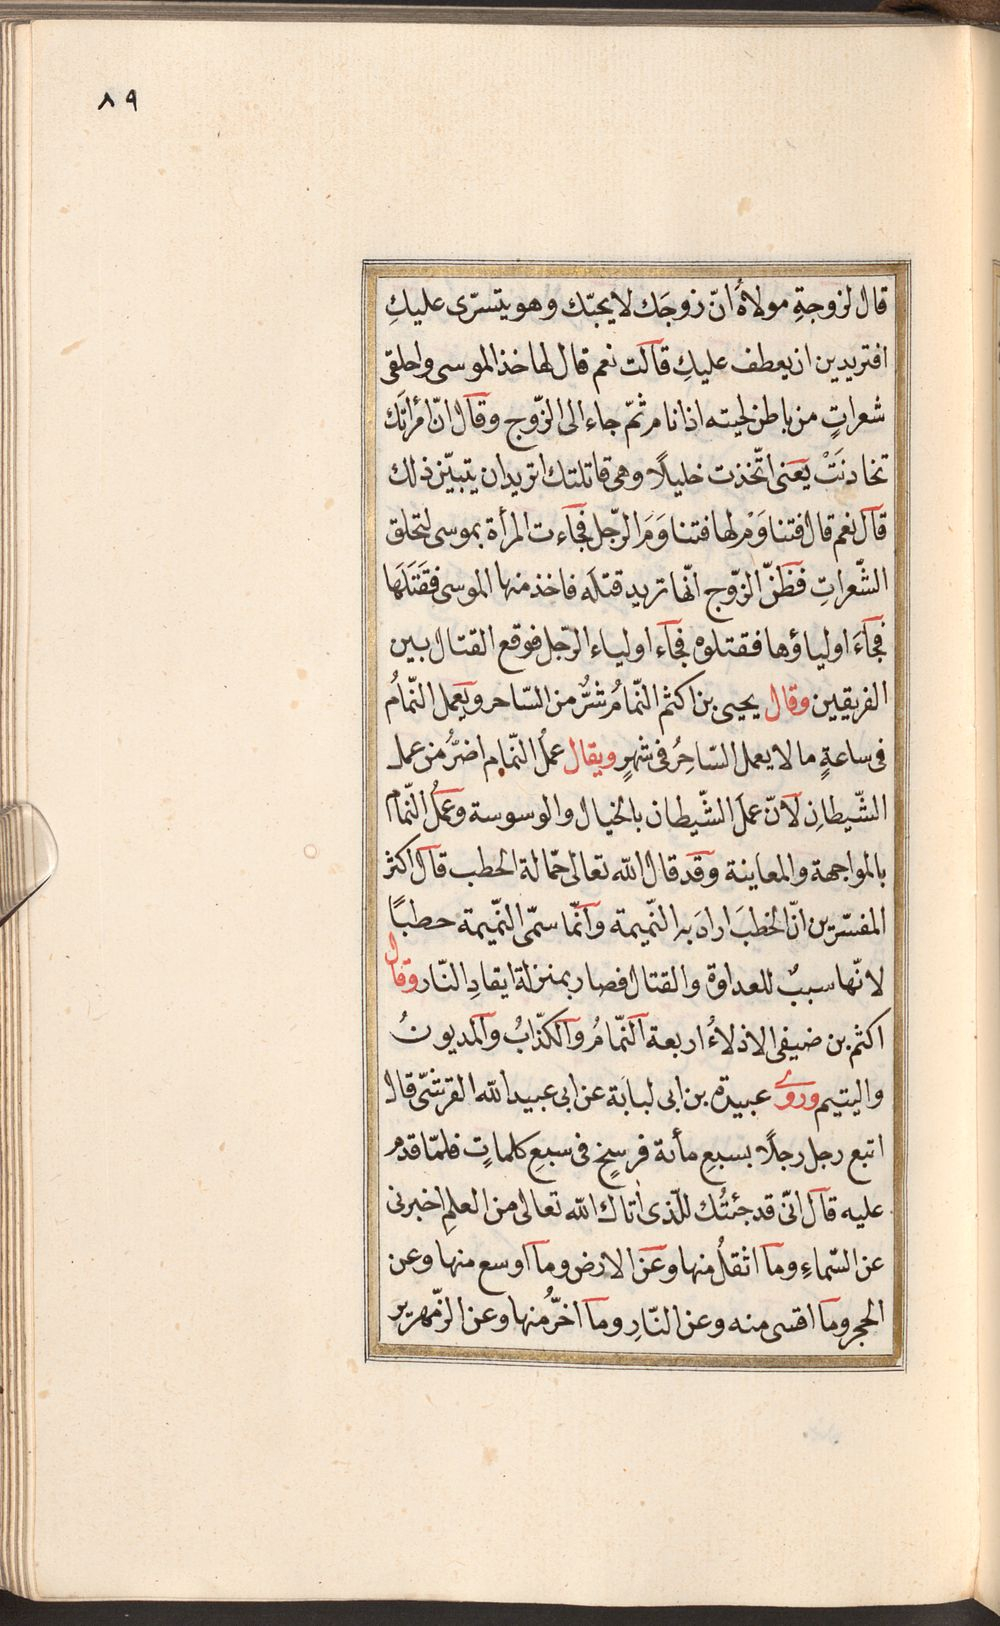 ٨٩
قال لزوجةِ مولاهُ انّ زوجَك لا يحبّك وهو يتسرّى عليكِ
افتريدين ان يعطف عليكِ قالت نعم قال لها خذ الموسى واحلقى
شعراتٍ من باطن لحيته اذا نام ثمّ جاء الى الزّوج وقال انّ امرأتَك
تخادنَتْ يعنى اتّخذت خليلًا وهى قاتلتك اتريد ان يتبيّن ذلك
قال نعم قال فتناوَمْ لها فتناوَمَ الرّجل فجآءت المرأة بموسى لتحلق
الشّعراتِ فظَنّ الزّوج انّها تريد قتله فاخذ منها الموسى فقَتَلَها
فجآءَ اولياؤها فقتلوه فجآء اولياء الرّجل فوقع القتال بين
الفريقين وقال يحيى بن اكثم النّمامُ شرٌّ من السّاحر ويعمل النّمامُ
فى ساعةٍ ما لا يعمل السّاحِرُ فى شهرٍ ويقال عملُ النّمام اضرُّ من عمل
الشّيطانِ لانّ عملَ الشّيطان بالخيال والوسوسة وعملُ النّمام
بالمواجهة والمعاينة وقد قال الله تعالى حمّالة الحطب قال اكثر
المفسّرين انّ الحطبَ ارادَ به النّميمة وانّما سمّى النّميمة حطبًا
لانّها سببٌ للعداوة والقتال فصار بمنزلة ايقادِ النّار وقال
اكثم بن ضيفى الاذلاءُ اربعة النّمامُ والكذّابُ والمديونُ
واليتيم وروى عبيدة بن ابى لبابَة عن ابى عبيد الله القرشىّ قال
اتبع رجل رجلًا بسبعِ مأئة فرسخٍ فى سبعِ كلماتٍ فلمّا قدم
عليه قال انّى قد جئتُك للّذى اتاك الله تعالى من العلمِ اخبرنى
عن السّماءِ وما اثقلُ منها وعن الارض وما اوسع منها وعن
الحجر وما اقسى منه وعن النّارِ وما احرُّ منها وعن الزّمهرير